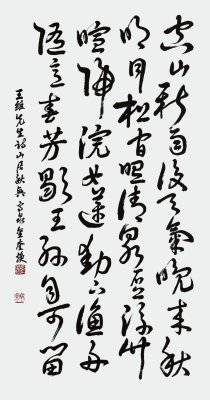 空山新雨後天氣晚來秋
明月松間照清泉石上流竹
喧歸浣女蓮動下漁舟
隨意春芳歇王孫自可留
王維先生詩山居秋